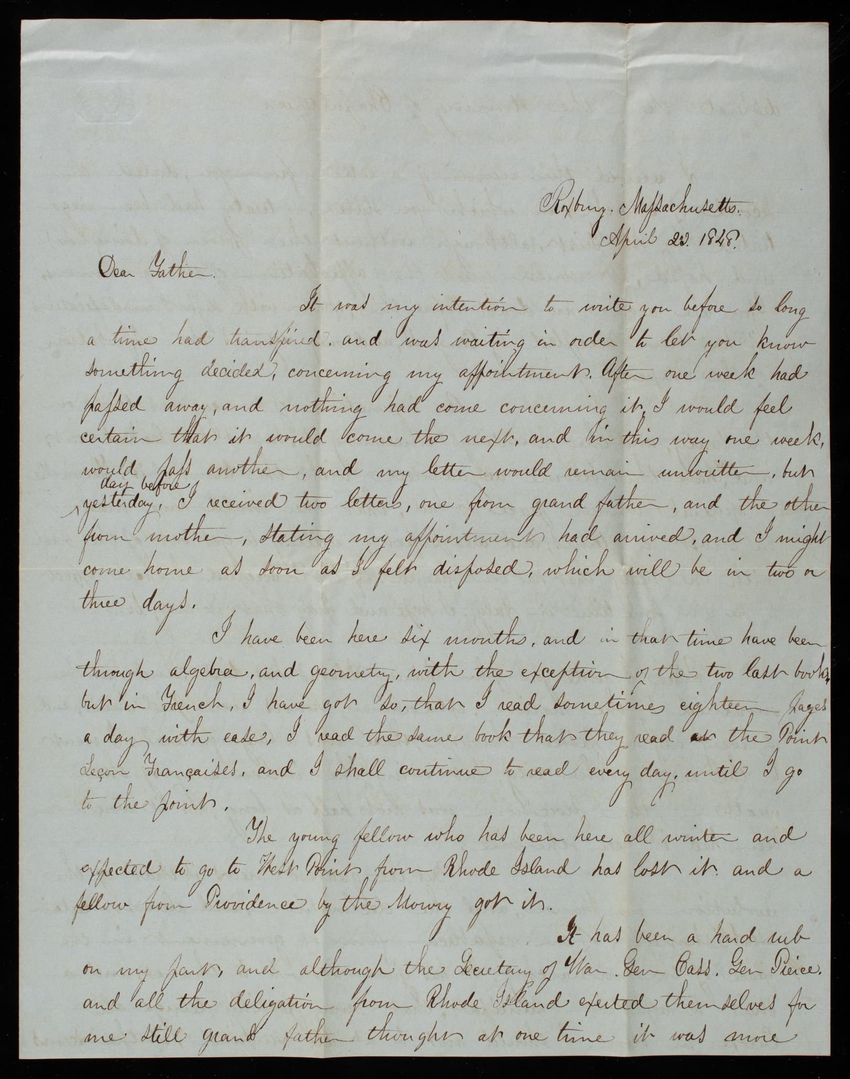 Roxbury. Massachusetts.
April 23. 1848.
Dear Father.
It was my intention to write you before so long
a time had transpired. and was waiting in order to let you know
something decided, concerning my appointment. After one week had
passed away, and nothing had come concerning it, I would feel
certain that it would come the next, and in this way one week,
would pass another, and my letter would remain unwritten, but
day before
yesterday, I received two letters, one from grand father, and the other
from mother, stating my appointment had arrived, and I might
come home as soon as I felt disposed, which will be in two or
three days.
I have been here six months, and in that time have been
through algebra, and geometry, with the exception of the two last books,
but in French, I have got so, that I read sometimes eighteen pages
a day with ease, I read the same book that they read at the Point
Leçon Françaises, and I shall continue to read every day, until I go
to the point.
The young fellow who has been here all winter and
expected to go to West Point from Rhode Island has lost it and a
fellow from Providence by the Mowry got it.
It has been a hard rub
on my part, and although the Secretary of War. Gen Cass. Gen Pierce.
and all the deligation from Rhode Island exerted themselves for
me still grand father thought at one time it was more